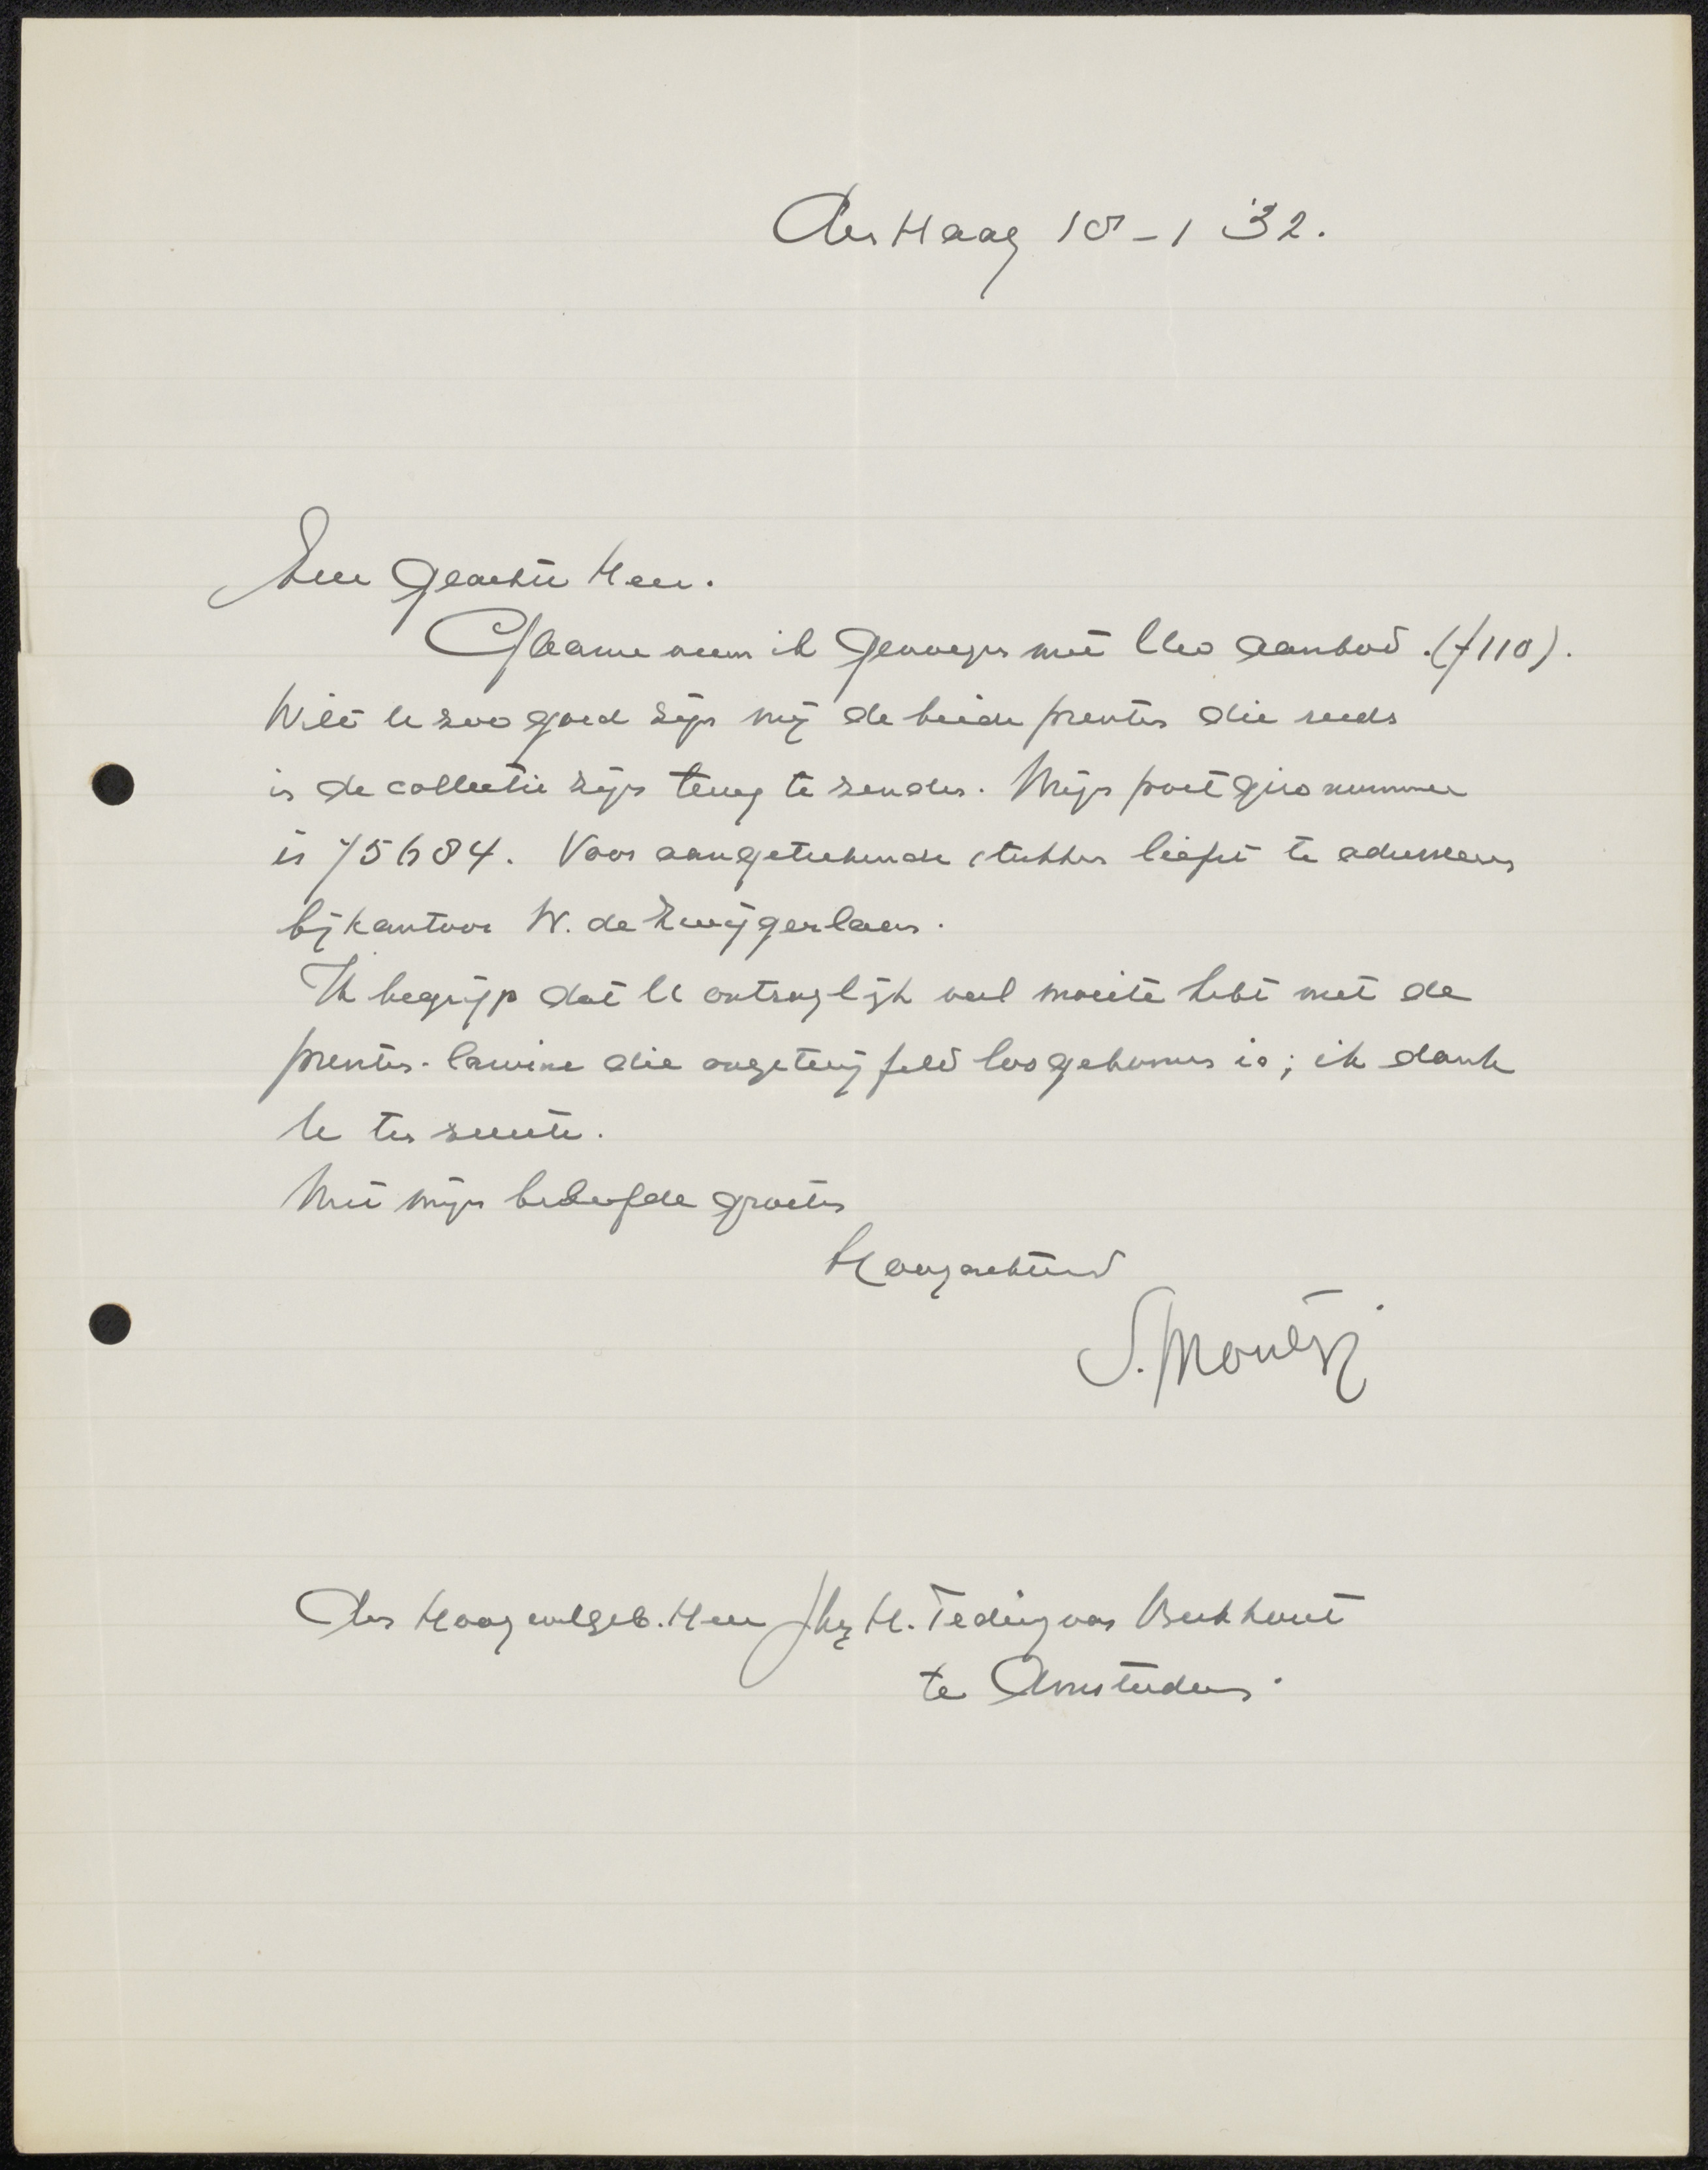 Den Haag 18-1 '32.
Zeer Geachte Heer.
Gaarne neem ik genoegen met Uw aanbod. (f 110).
Wilt U zoo goed zijn mij de beide prenten die reeds
in de collectie zijn terug te zenden. Mijn postgironummer
is 75684. Voor aangeteekende stukken liefst te adresseeren
bijkantoor W. de Zwijgerlaan.
Ik begrijp dat U ontzaglijk veel moeite hebt met de
prenten-lawine die ongetwijfeld losgekomen is; ik dank
U ten zeerste.
Met mijn beleefde groeten
Hoogachtend
S.
Den Hoogwelgeb. Heer Jhr H. Teding van Berkhout
te Amsterdam.